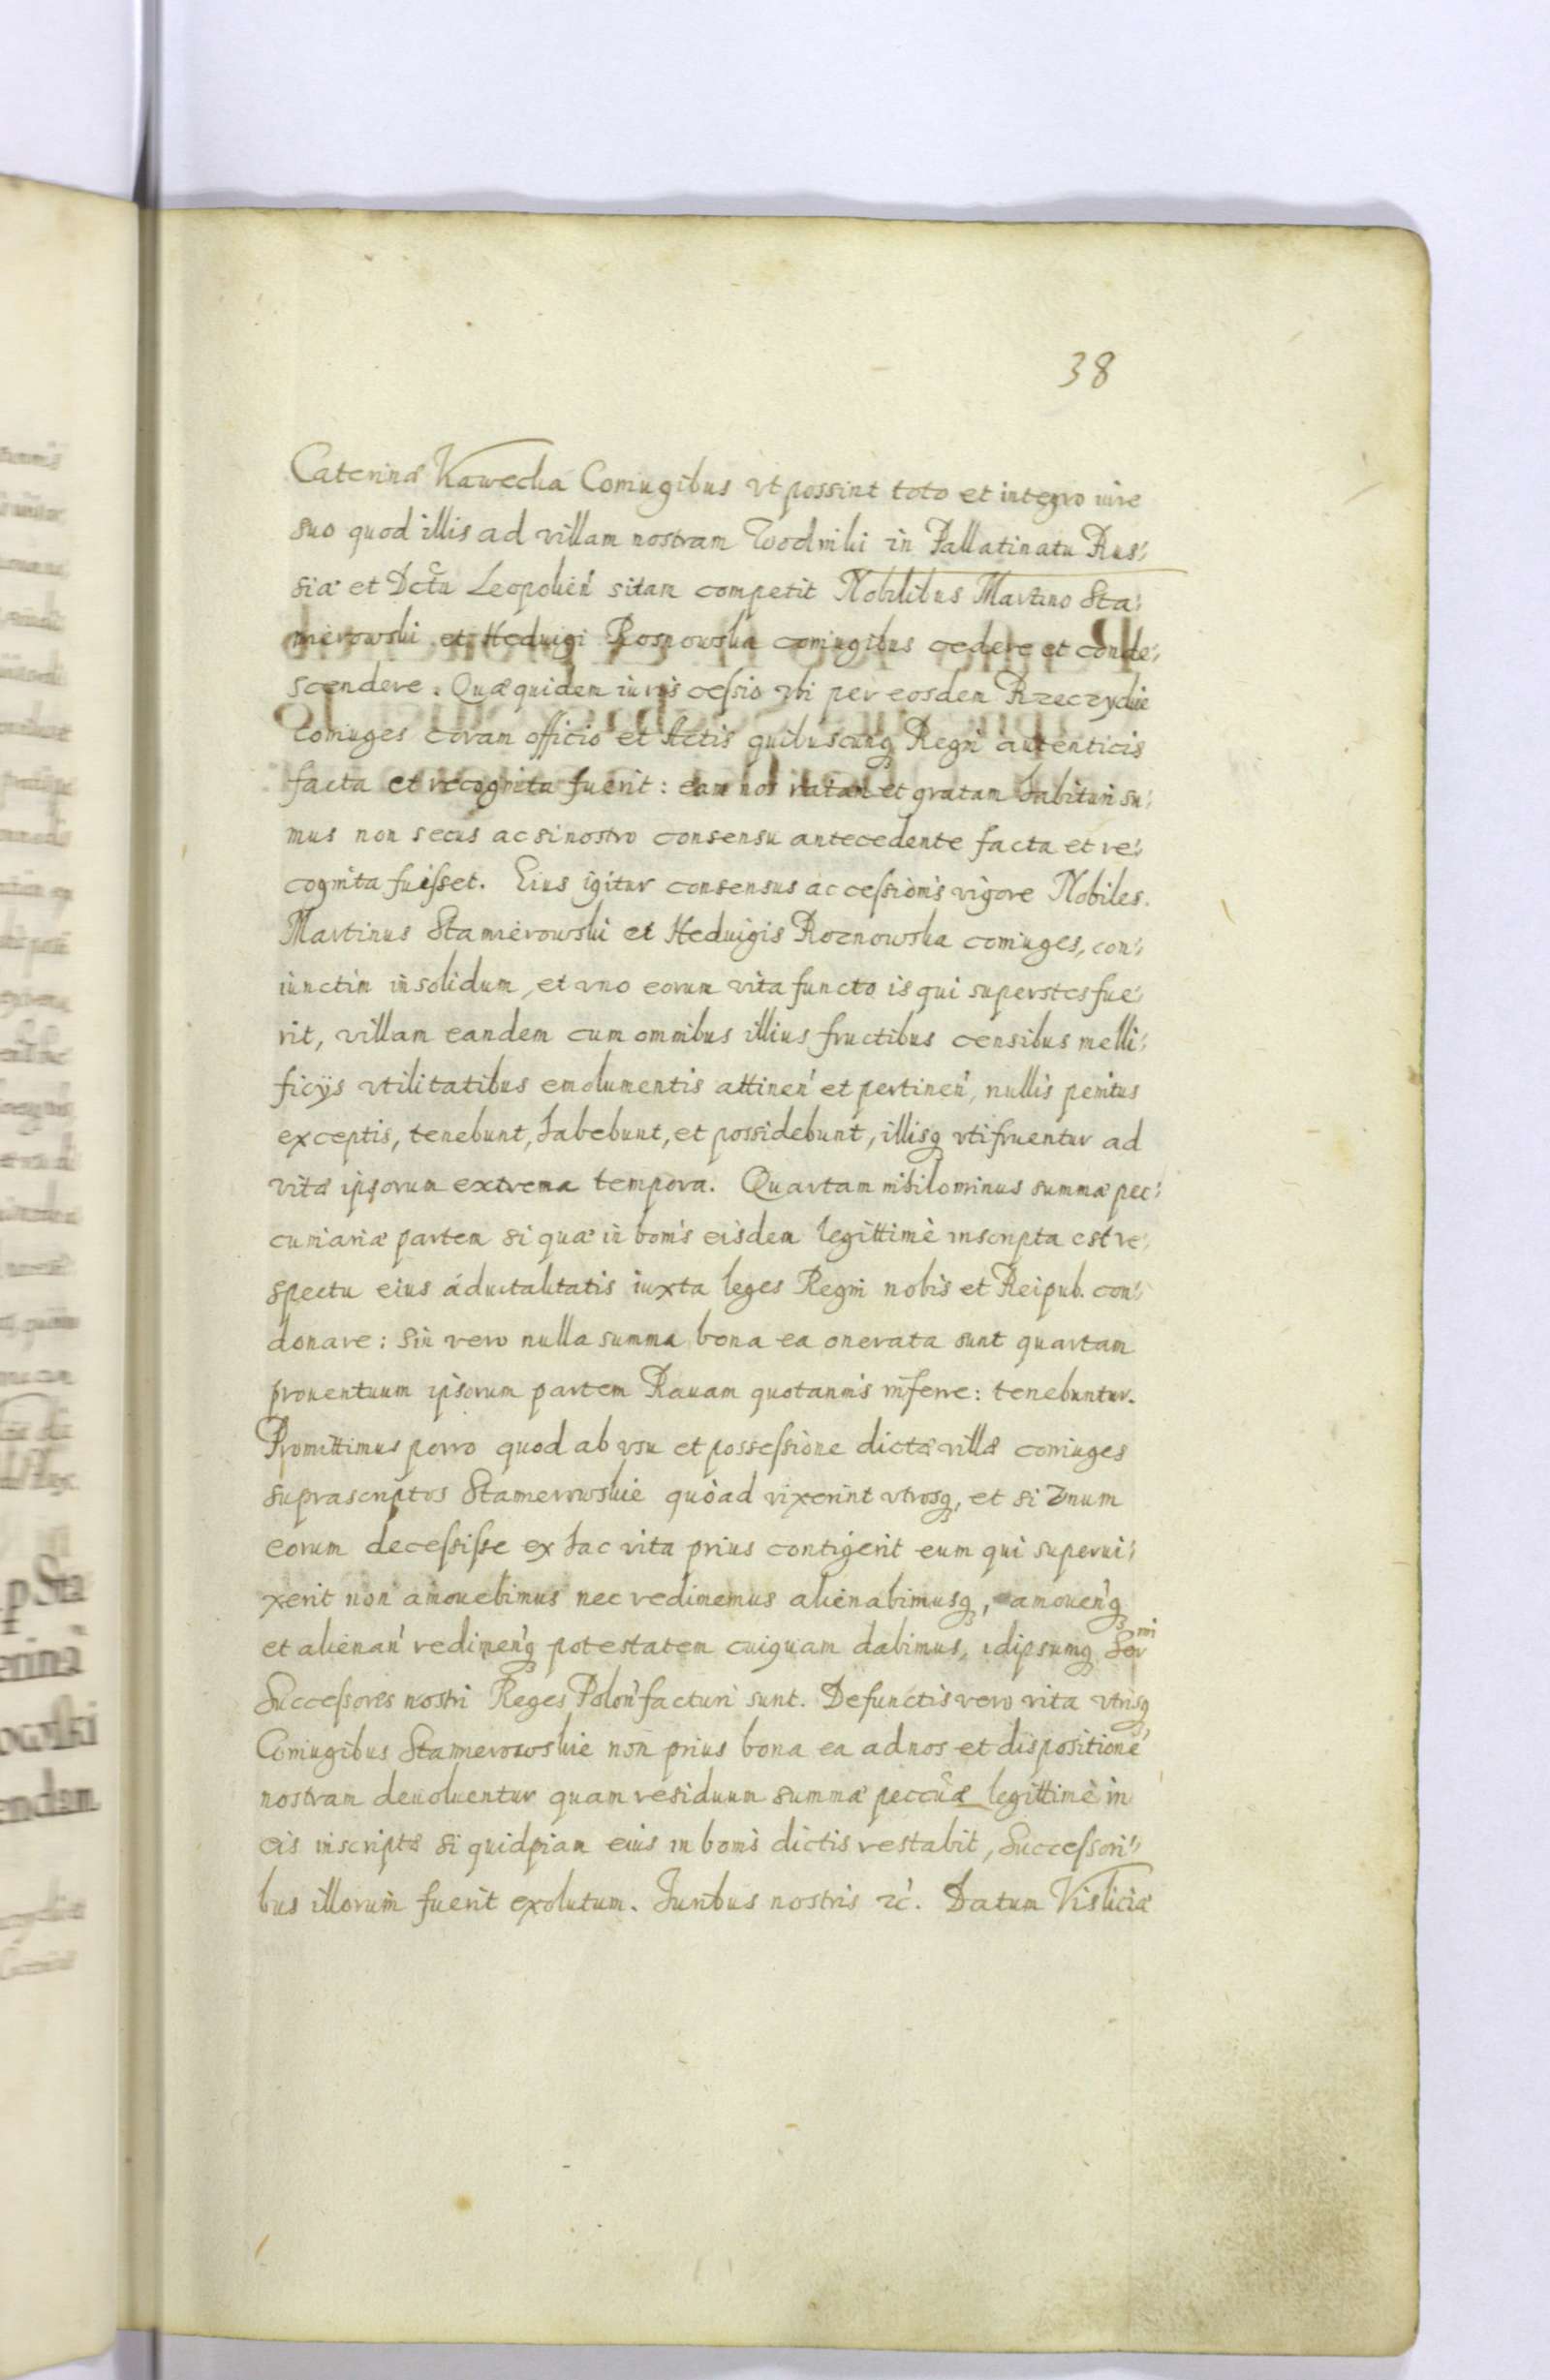 38
Caterinæ Kawecka Coniugibus vt possint toto et integro iure
suo quod illis ad villam nostram Wodniki in Pallatinatu Rus⸗
siæ et Dctu Leopolien̄ sitam competit Nobilibus Martino Sta⸗
mierowski et Heduigi Rosnowska coniugibus cedere et conde⸗
scendere. Quæquidem iuris cessio vbi per eosdem Rzeczyckie
Coniuges coram officio et Actis quibuscunq Regni autenticis
facta et recognita fuerit: eam nos ratam et gratam habituri su⸗
mus non secus ac si nostro consensu antecedente facta et re⸗
cognita fuisset. Eius igitur consensus ac cessionis vigore Nobiles.
Martinus Stamierowski et Heduigis Roznowska coniuges, con⸗
iunctim in solidum, et vno eorum vita functo is qui superstes fue⸗
rit, villam eandem cum omnibus illius fructibus censibus melli⸗
ficijs vtilitatibus emolumentis attinen̄ et pertinen̄, nullis penitus
exceptis, tenebunt, habebunt, et possidebunt, illisq vtifruentur ad
vitæ ipsorum extrema tempora. Quartam nihilominus summæ pec⸗
cuniariæ partem si quæ in bonis eisdem legittimè inscripta est re⸗
spectu eius áduitalitatis iuxta leges Regni nobis et Reipub. con⸗
donare: sin vero nulla summa bona ea onerata sunt quartam
prouentuum ipsorum partem Rauam quotannis inferre: tenebuntur.
Promittimus porro quod ab vsu et possessione dictæ villæ coniuges
suprascriptos Stamierowskie quòad vixerint vtrosq, et si vnum
eorum decessisse ex hac vita prius contigerit eum qui superui⸗
xerit non amouebimus nec redimemus alienabimusq, amouen̄q
et alienan̄ redimen̄q potestatem cuiquam dabimus, idipsumq Ser
mi
Successores nostri Reges Polon̄ facturi sunt. Defunctis vero vita vtrisq
Coniugibus Stamierowskie non prius bona ea ad nos et dispositionē
nostram deuoluentur quam residuum summæ peccũæ legittimè in
eis inscriptæ si quidpiam eius in bonis dictis restabit, Successori⸗
bus illorum fuerit exolutum. Iuribus nostris ⁊c̄. Datum Visliciæ